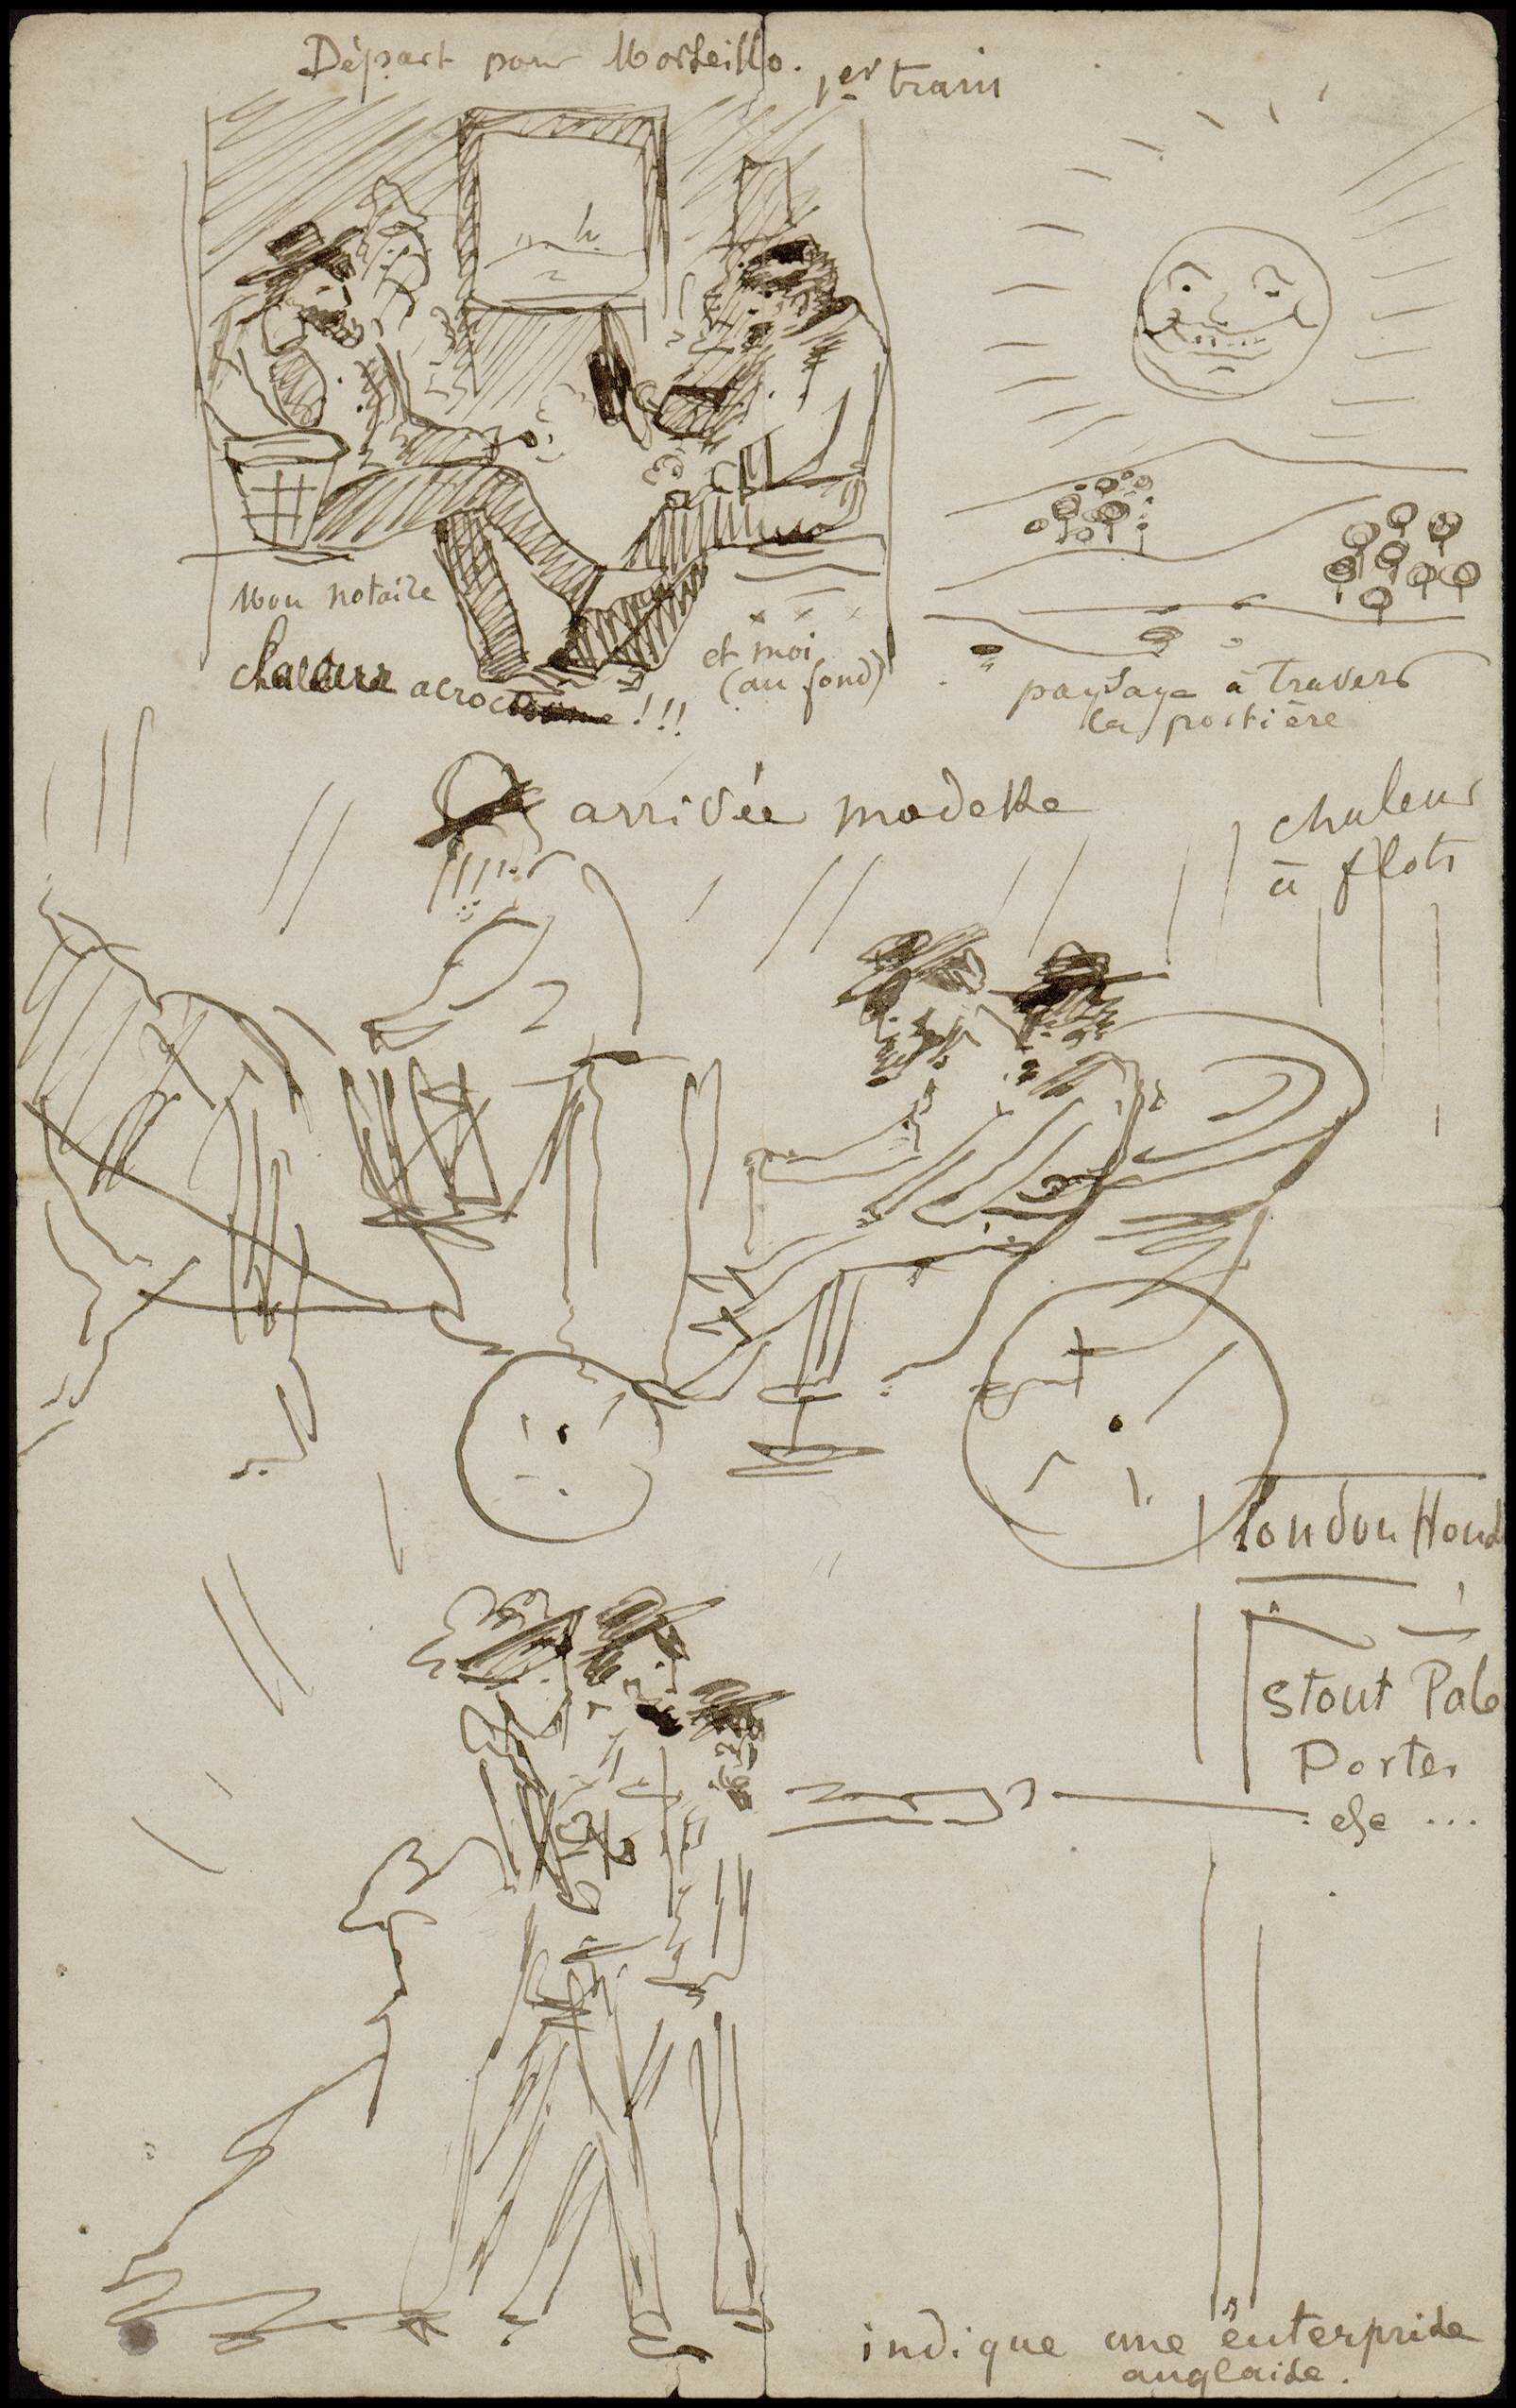 Départ pour Marseille. 1er train
Mon notaire
chaleur
!!!
et moi
(au fond)
paysage à travers
la portière
arrivée modeste
chaleur
à flots
London Hous
Stout Pale
Porter
etc ...
indique une enterprise
anglaise.